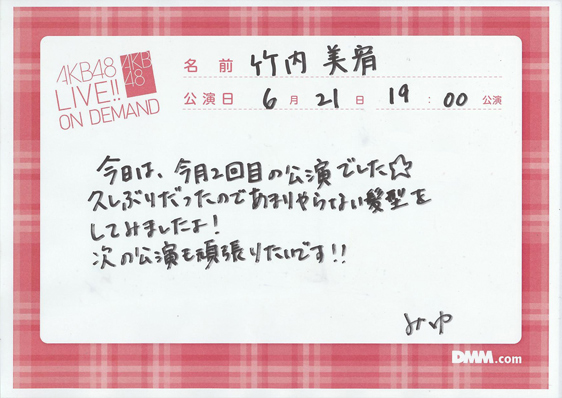 AKB48
LIVE!!
ON DEMAND
AKB
48
名前 竹内 美宥
公演日 6月21日 19:00 公演
今日は、今月2回目の公演でした☆
久しぶりだったのであまりやらない髪型を
してみましたよ!
次の公演も頑張りたいです!!
みゆ
DMM.com